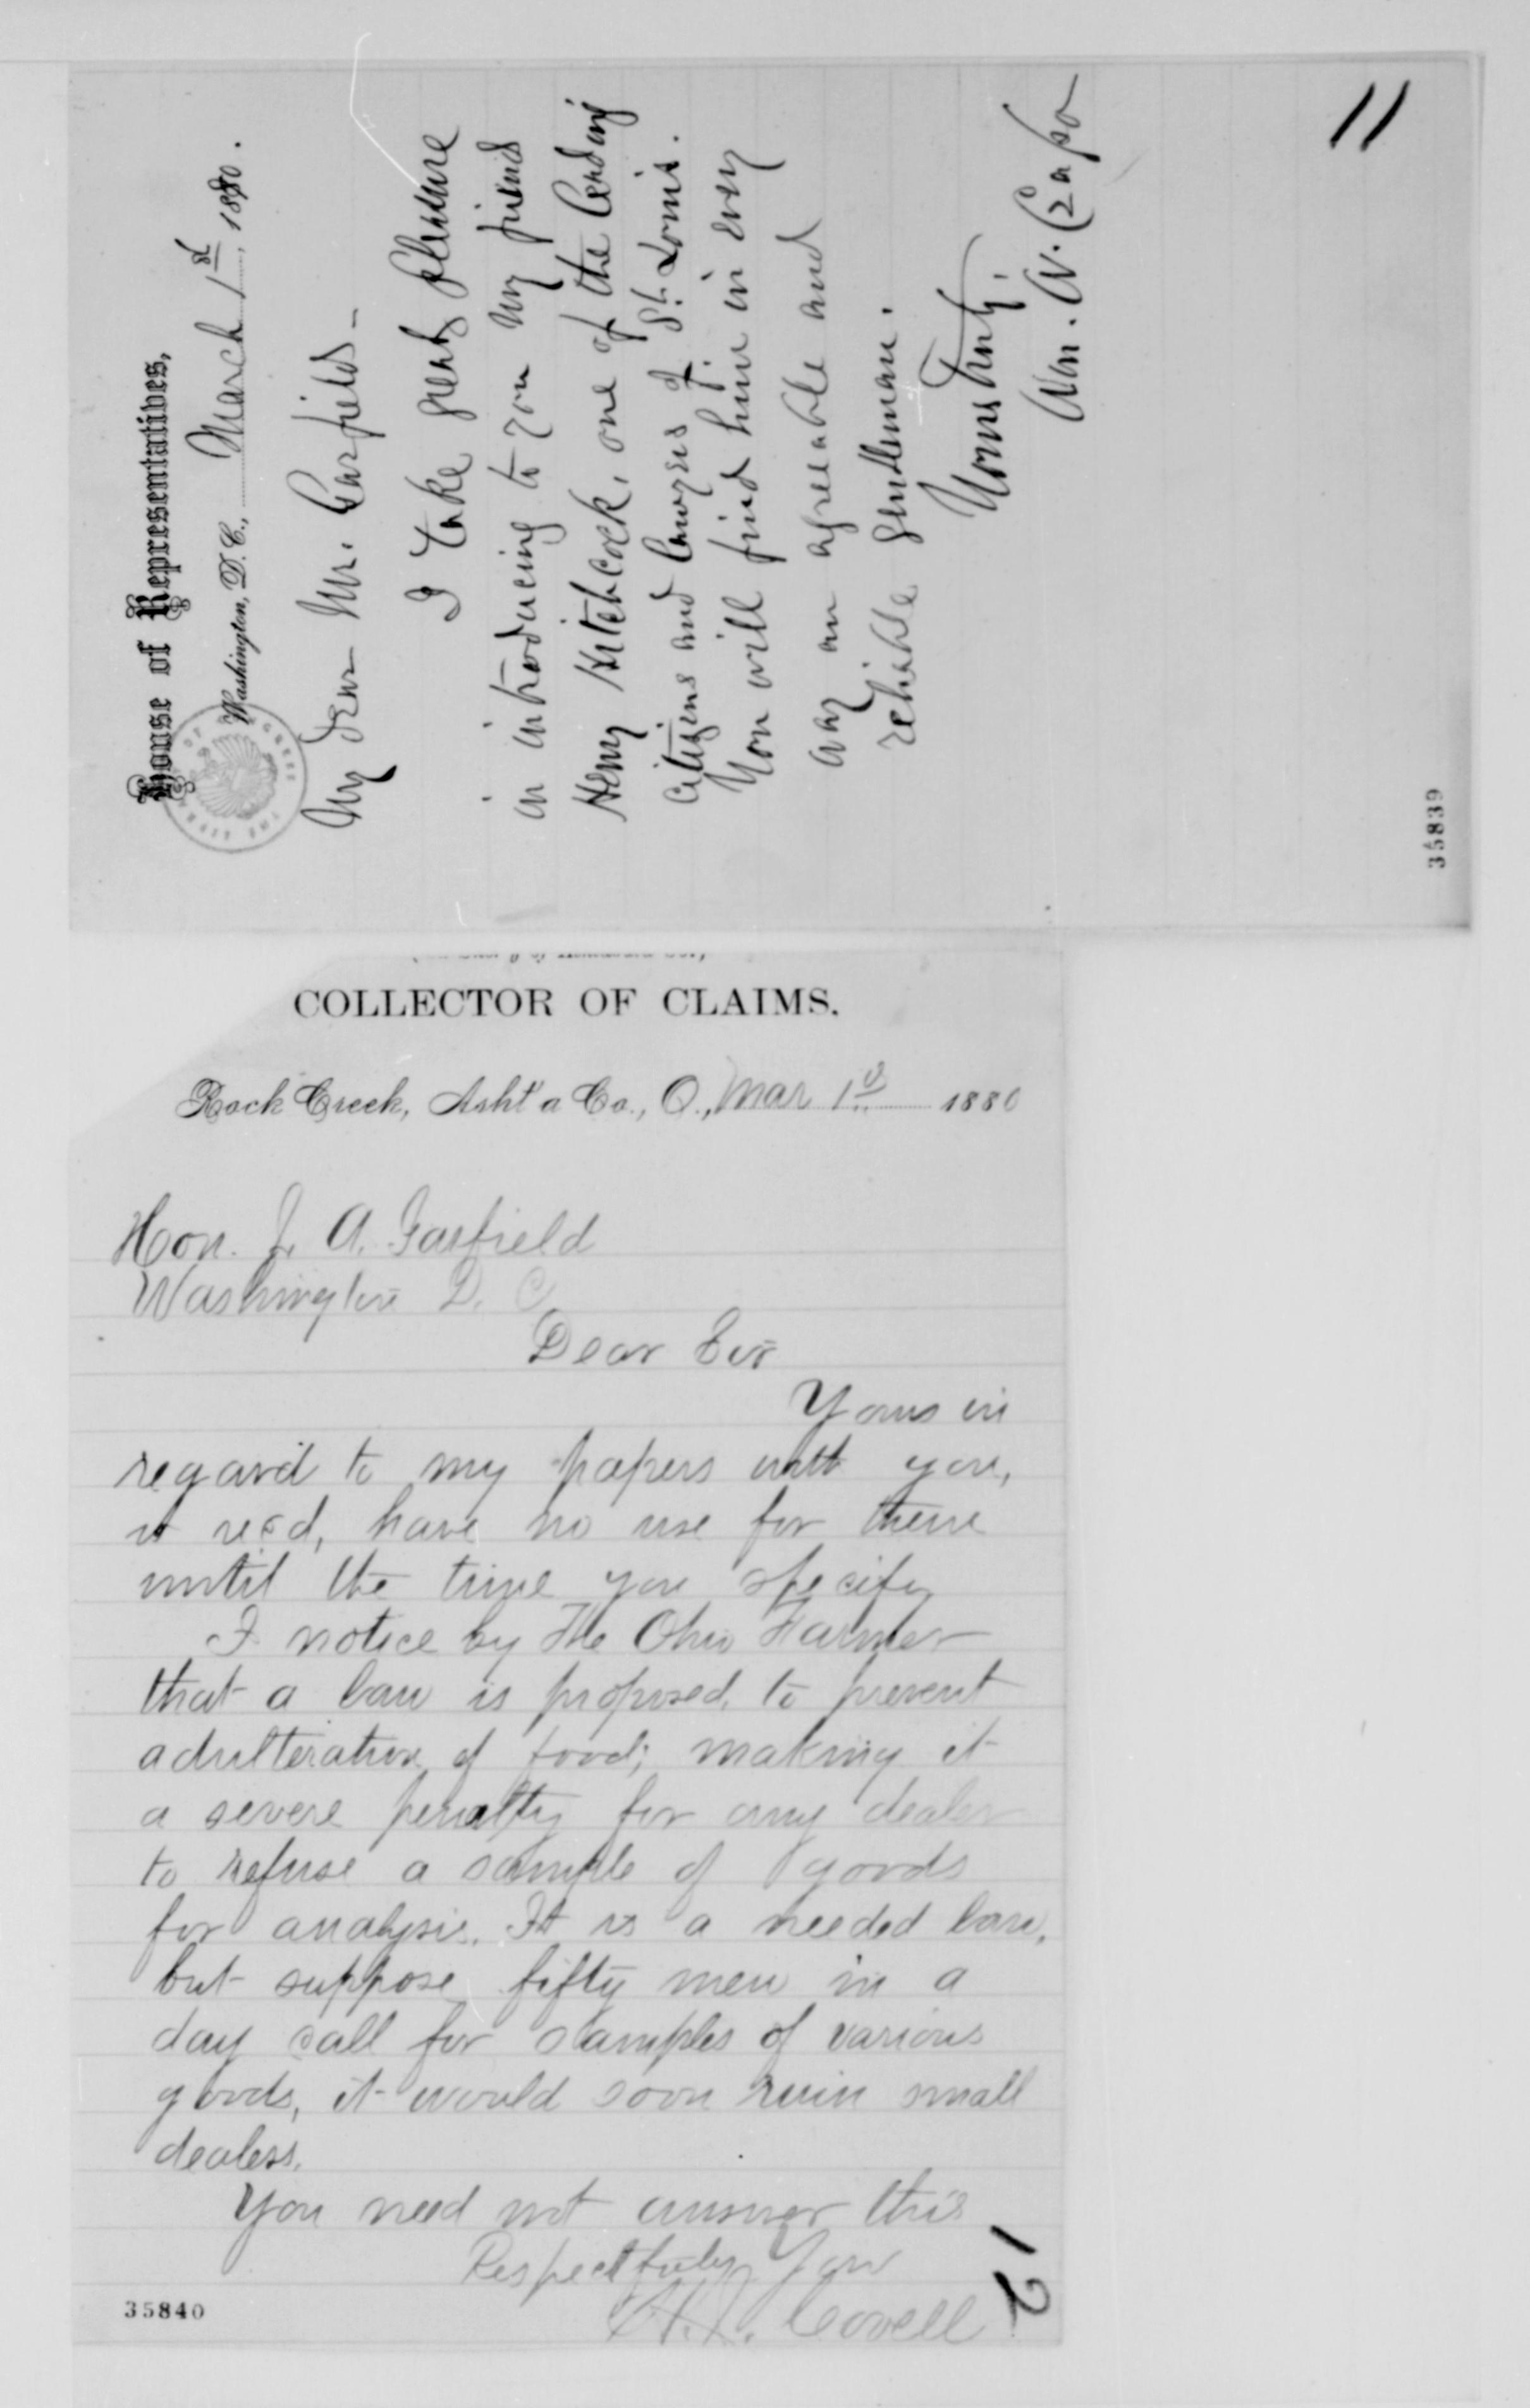 House of Representatives,
Washington, D.C., March 1st, 1880.
My dear Mr. Garfield—
I take great pleasure
in introducing to you my friend
Henry Hitchcock, one of the leading
citizens and lawyers of St. Louis.
You will find him in every
way an agreeable and
reliable gentleman.
Yours Truly,
Wm.
11
35839
COLLECTOR OF CLAIMS.
Rock Creek, Asht'a Co., O., Mar 1st 1880
Hon. J. A. Garfield
Washington D. C
Dear Sir
Yours in
regard to my papers with you,
is recd, have no use for them
until the time you specify
I notice by The Ohio Farmer
that a law is proposed, to prevent
adulteration of food; making it
a severe penalty for any dealer
to refuse a sample of goods
for analysis. It is a needed law,
but suppose fifty men in a
day call for samples of various
goods, it would soon ruin small
dealers.
You need not answer this
Respectfully Your
Covell
12
35840